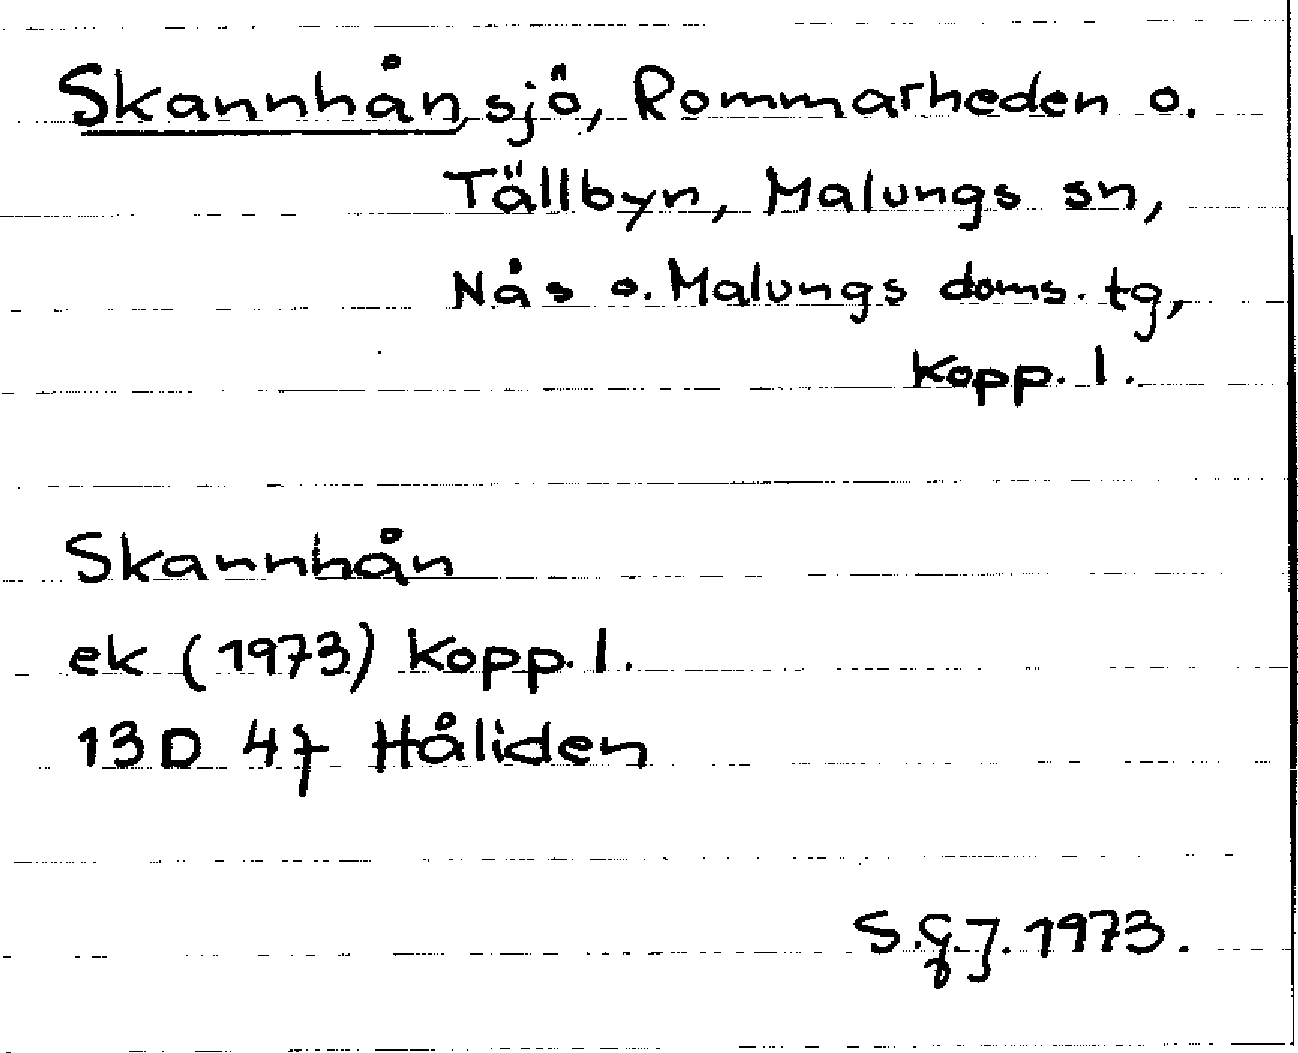 Skannhån, sjö, Rommarheden o.
Tällbyn, Malungs sn,
Nås o. Malungs doms. tg,
Kopp. l.
Skannhån
ek (1973) Kopp. l.
13D 4f Håliden
S.G.J. 1973.